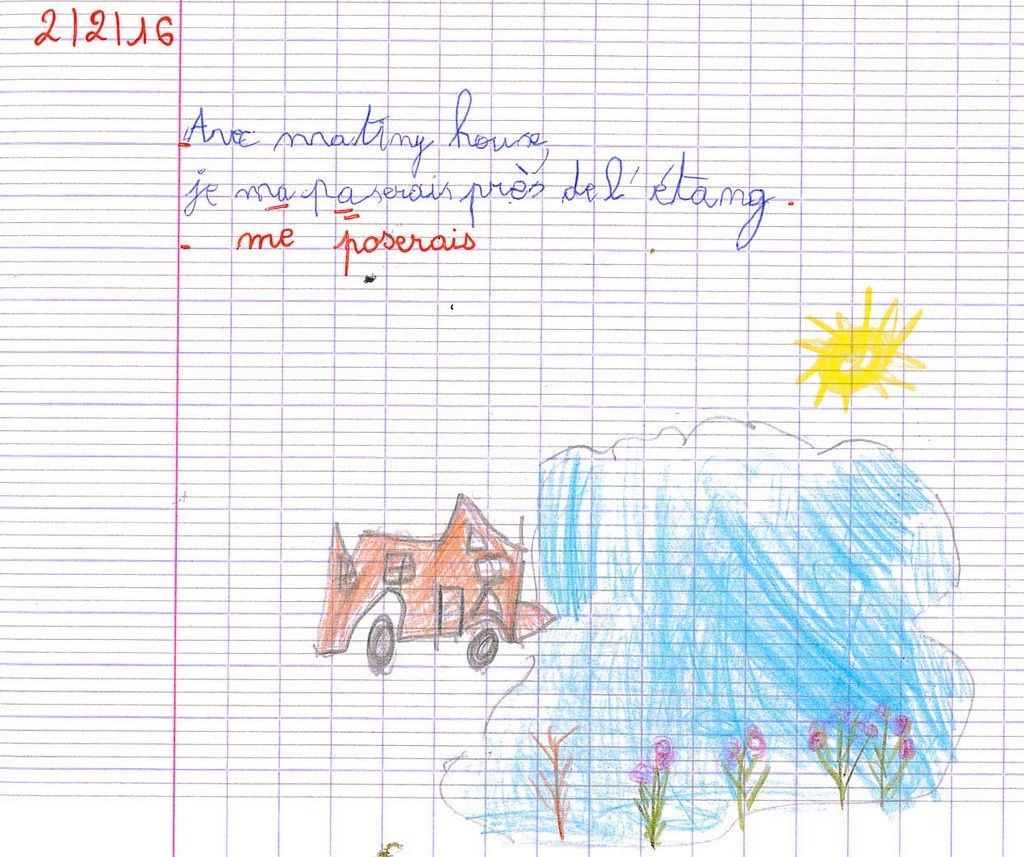 2/2/16
Avec ma tiny house,
je ma paserais près de l'étang.
- me poserais